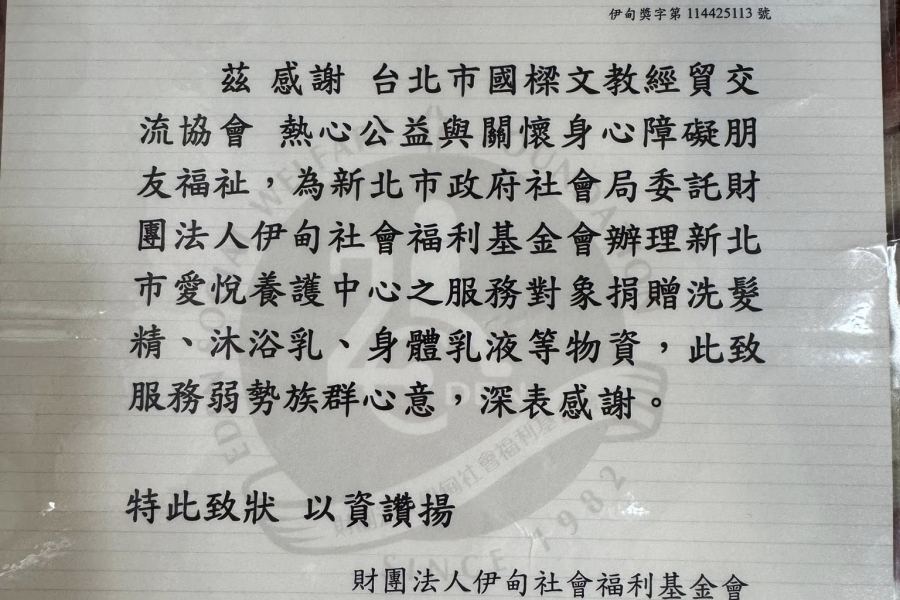 伊甸獎字第 114425113 號
茲 感謝 台北市國樑文教經貿交
流協會 熱心公益與關懷身心障礙朋
友福祉，為新北市政府社會局委託財
團法人伊甸社會福利基金會辦理新北
市愛悅養護中心之服務對象捐贈洗髮
精、沐浴乳、身體乳液等物資，此致
服務弱勢族群心意，深表感謝。
特此致狀 以資讚揚
SINCE 1982
財團法人伊甸社會福利基金會